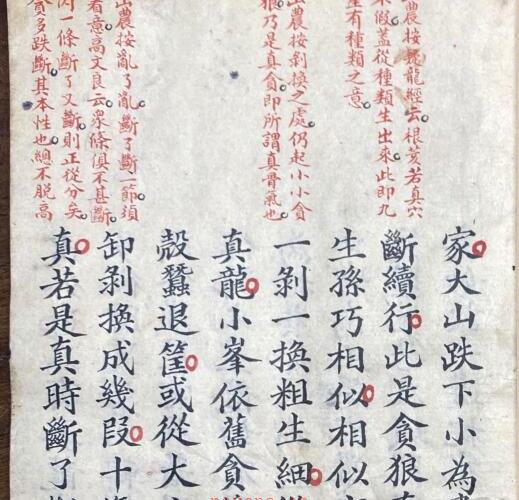 農按龍經云根荄若真穴
不假蓋從種類生出來此即九
星有種類之意
山農按剝換之處仍起小小貪
狼乃是真貪即所謂真骨氣也
山農按亂了亂斷了斷一節須
看意高文良云衆條俱不甚斷
一條斷了又斷則正從分矣
貪多跌斷其本性也總不脫高
家大山跌下小為
斷續行此是貪狼
生孫巧相似相似
一剝一換粗生細
真龍小峯依舊貪
殼蠶退筐或從大
卸剝換成幾段十
真若是真時斷了